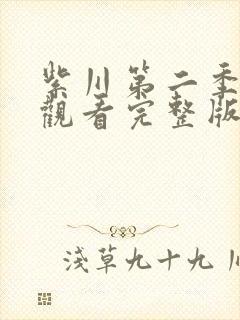 紫川第二季
觀看完整版
淺草九十九